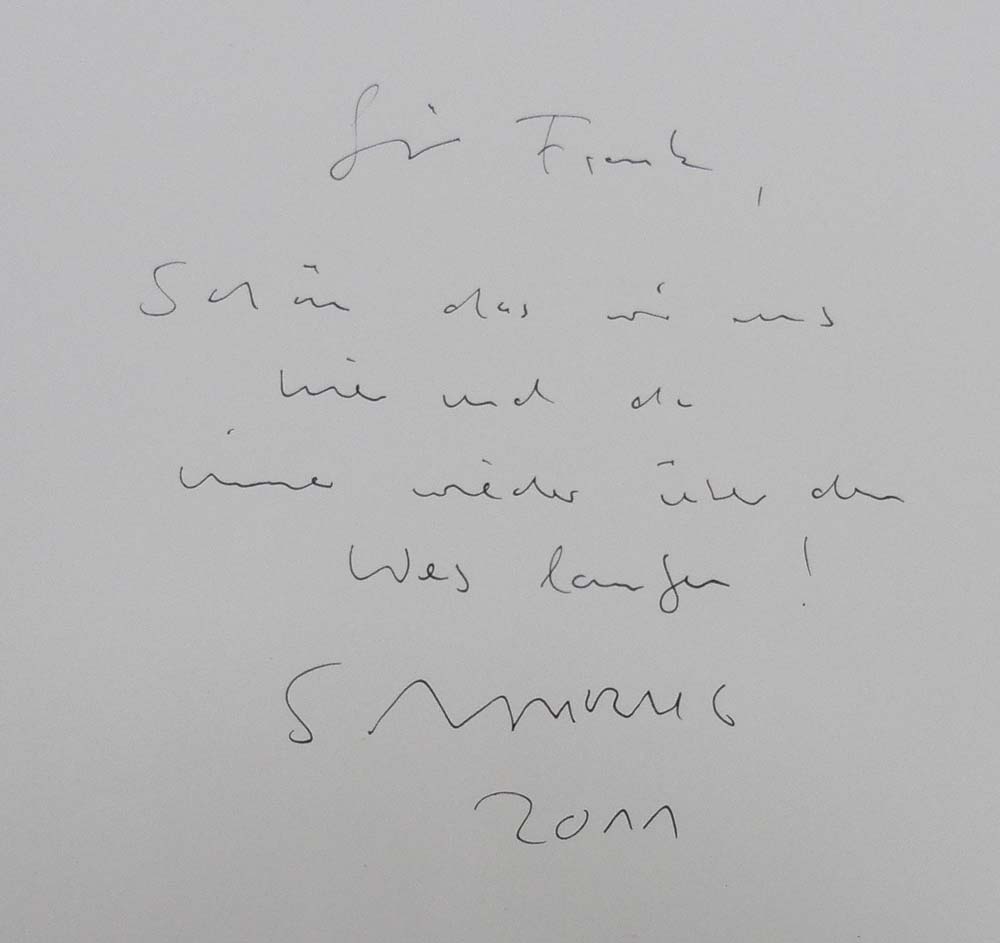 Für Frank,
Schön das wir uns
hier und da
immer wieder über den
Weg laufen!
2011